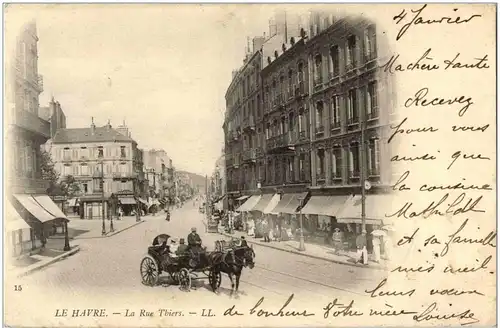 4 Janvier
Ma chère tante
Recevez
pour vous
ainsi que
la cousine
Mathilde
et sa famille
mes meil
leurs voeux
de bonheur Votre nièce Louise
15
LE HAVRE. — La Rue Thiers. — LL.